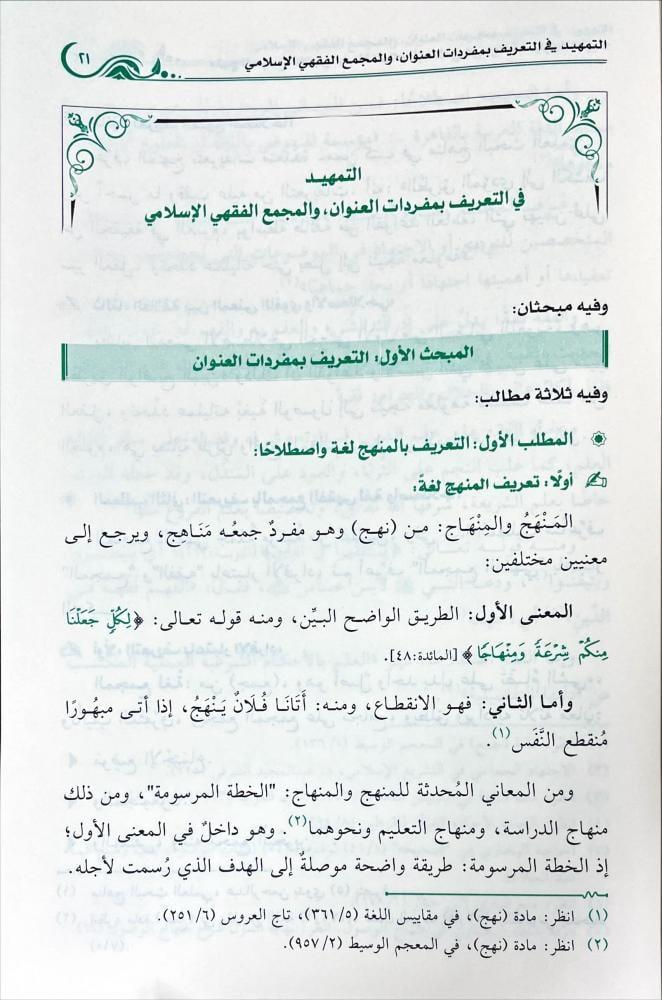 التمهيد في التعريف بمفردات العنوان، والمجمع الفقهي الإسلامي
٢١
التمهيد
في التعريف بمفردات العنوان، والمجمع الفقهي الإسلامي
وفيه مبحثان:
المبحث الأول: التعريف بمفردات العنوان
وفيه ثلاثة مطالب:
المطلب الأول: التعريف بالمنهج لغة واصطلاحًا:
أولًا: تعريف المنهج لغة:
المَنْهَجُ والمِنْهَاج: من (نهج) وهو مفردٌ جمعُه مَنَاهِج، ويرجع إلى
معنيين مختلفين:
المعنى الأول: الطريق الواضح البيِّن، ومنه قوله تعالى: ﴿لِكُلٍّ جَعَلْنَا
مِنكُمْ شِرْعَةً وَمِنْهَاجًا﴾ [المائدة:٤٨].
وأما الثاني: فهو الانقطاع، ومنه: أَتَانَا فُلَانٌ يَنْهَجُ، إذا أتى مبهُورًا
مُنقطع النَّفَس(١).
ومن المعاني المُحدثة للمنهج والمنهاج: "الخطة المرسومة"، ومن ذلك
منهاج الدراسة، ومنهاج التعليم ونحوهما(٢). وهو داخلٌ في المعنى الأول؛
إذ الخطة المرسومة: طريقة واضحة موصلةٌ إلى الهدف الذي رُسمت لأجله.
(١) انظر: مادة (نهج)، في مقاييس اللغة (٣٦١/٥)، تاج العروس (٢٥١/٦).
(٢) انظر: مادة (نهج)، في المعجم الوسيط (٩٥٧/٢).